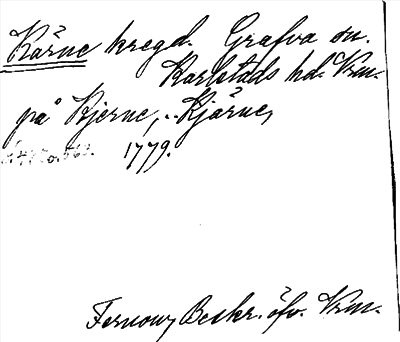 Kärne kregd. Grafva sn.
Karlstads hd. Vrm.
på Kjerne, .. Kjärne,
1779.
Fernow, Beskr. öfv. Vrm.